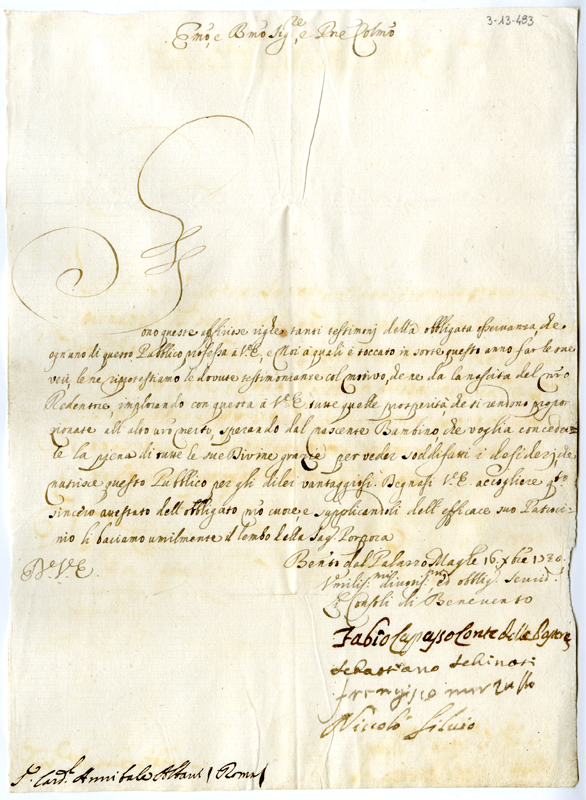 3-13-483
Em̃o, e Rm̃o Sig.re, e Pr̃ne Colm̃o
Sono queste offiziose righe tanti testimonj della obbligata osservanza, che
ognuno di questo Pubblico professa à V.E., e Noi à quali è toccato in sorte questo anno far le sue
veci, le ne rapprestiamo le dovute testimonianze col motivo, che ne da la nascita del nr̃o
Redentore, implorando con questa à V.E. tutte quelle prosperità che si rendono propor=
zionate all'alto suo merito, sperando dal nascente Bambino che voglia conceder=
le la piena di tutte le sue Divine grazie per veder soddisfatti i desiderj, che
nutrisce questo Pubblico per gli di lei vantaggiosi. Degnasi V.E. accogliere q.to
sincero attestato dell'obligato nr̃o cuore, e supplicandoli dell'efficace suo Patroci=
nio li baciamo umilmente il lembo della Sag. Porpora
Ben.to dal Palazzo Mag.le 16 Xbre
D. V. E.
Umilis.mi divotis.mi ed obblig. Servid.
I Consoli di Benevento
Fabio Capasso Conte della
Sebastiano
Francesco
Niccolò
S.r Card.l Annibale Albani / Roma /